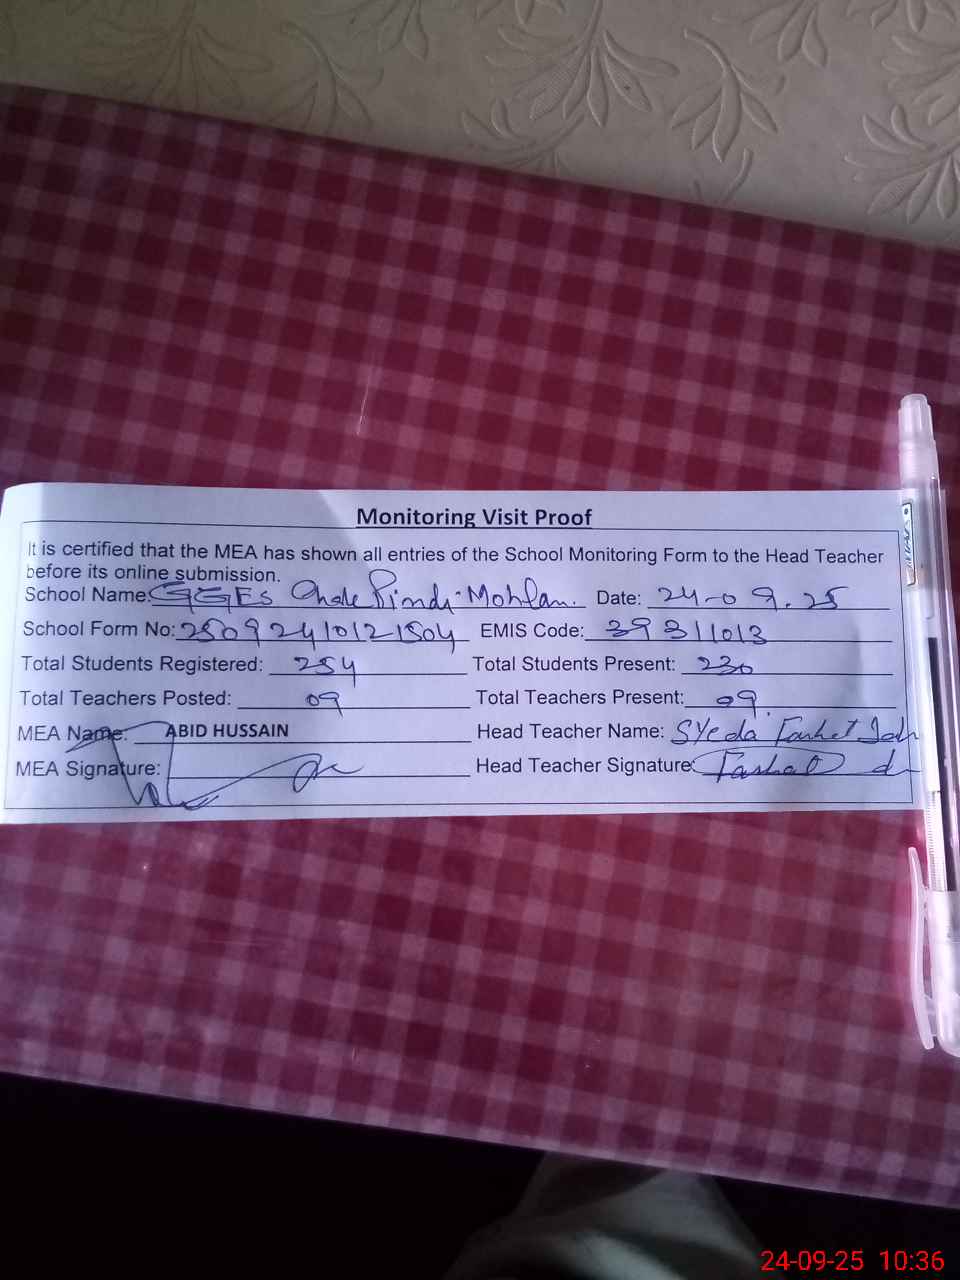 Monitoring Visit Proof
It is certified that the MEA has shown all entries of the School Monitoring Form to the Head Teacher
before its online submission.
School Name: GGES Chak Pindi Mohlan. Date: 24-09-25
School Form No: 25092410121504 EMIS Code: 39311013
Total Students Registered: 254 Total Students Present: 230
Total Teachers Posted: 09 Total Teachers Present: 09
MEA Name: ABID HUSSAIN Head Teacher Name: SYeda
MEA Signature: Head Teacher Signature:
24-09-25 10:36